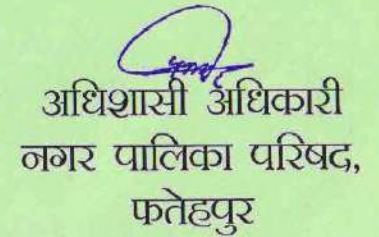 अधिशासी अधिकारी
नगर पालिका परिषद,
फतेहपुर